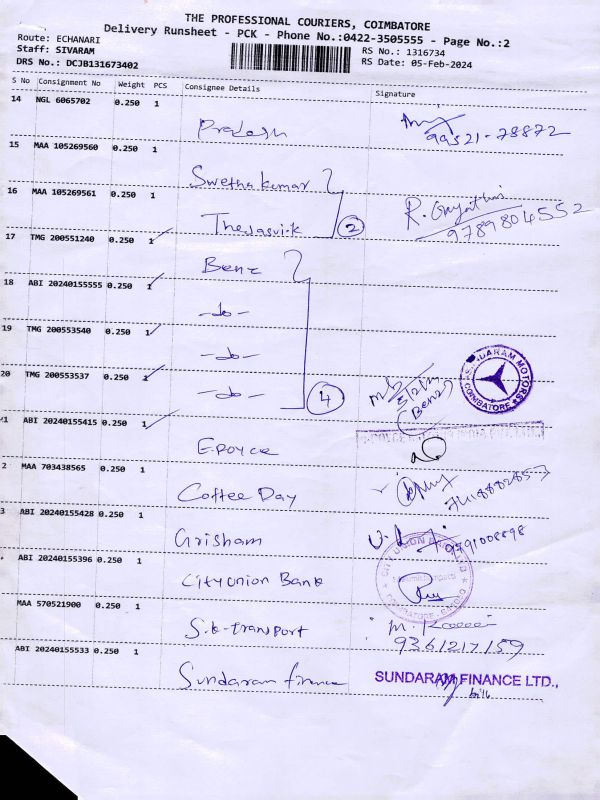 THE PROFESSIONAL COURIERS, COIMBATORE
Delivery Runsheet - PCK - Phone No.:0422-3505555 - Page No.:2
Route: ECHANARI
Staff: SIVARAM
DRS No.: DCJB131673402
RS No.: 1316734
RS Date: 05-Feb-2024
S No Consignment No Weight PCS Consignee Details Signature
14 NGL 6065702 0.250 1
Prakash
99521-78872
15 MAA 105269560 0.250 1
Swetha kumar
16 MAA 105269561 0.250 1
Thejasvik 2
R. Gayathri
9789804552
17 TMG 200551240 0.250 1
Benz
18 ABI 20240155555 0.250 1
-do-
19 TMG 200553540 0.250 1
-do-
20 TMG 200553537 0.250 1
-do- 4
(Benz)
SUNDARAM MOTORS
COIMBATORE
21 ABI 20240155415 0.250 1
E.Royce
2 MAA 703438565 0.250 1
Coffee Day
3 ABI 20240155428 0.250 1
Grisham
9791008898
ABI 20240155396 0.250 1
City Union Bank
CITY UNION BANK LTD
MAA 570521900 0.250 1
S.k-transport
9361217159
ABI 20240155533 0.250 1
Sundaram finance
SUNDARAM FINANCE LTD.,